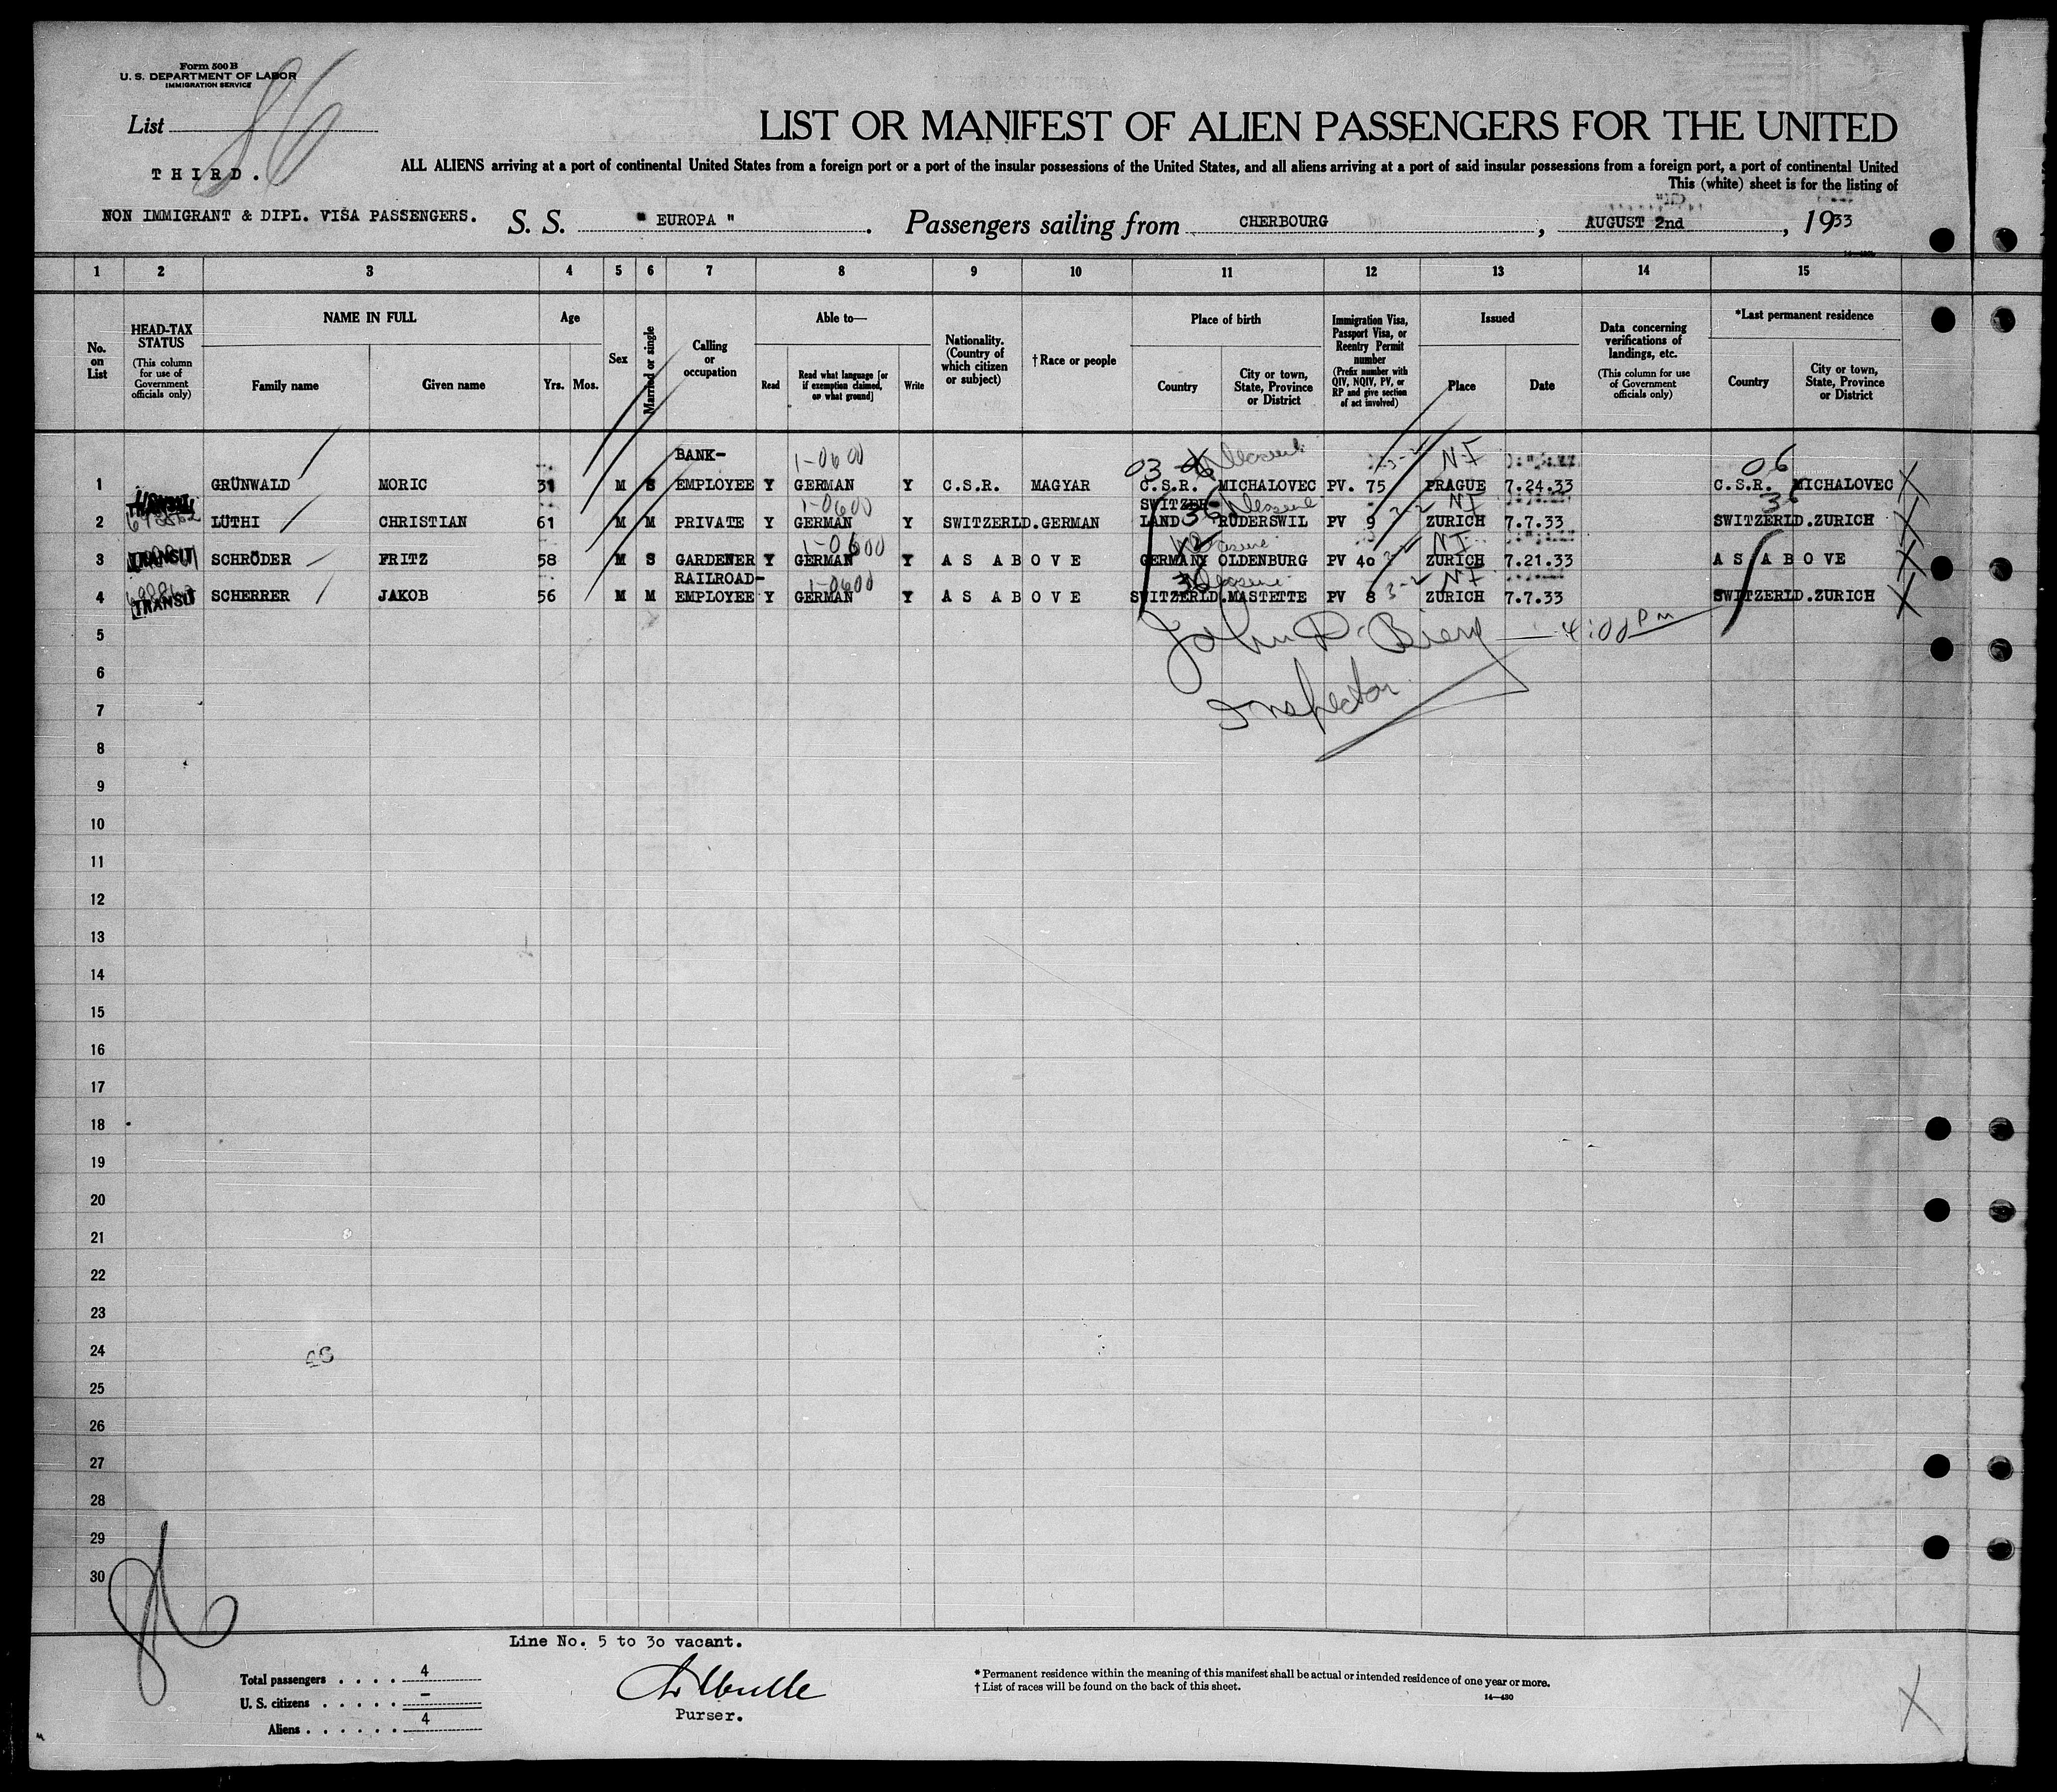 Form 500 B
U. S. DEPARTMENT OF LABOR
IMMIGRATION SERVICE
List 86
THIRD.
LIST OR MANIFEST OF ALIEN PASSENGERS FOR THE UNITED
ALL ALIENS arriving at a port of continental United States from a foreign port or a port of the insular possessions of the United States, and all aliens arriving at a port of said insular possessions from a foreign port, a port of continental United
This (white) sheet is for the listing of
NON IMMIGRANT & DIPL. VISA PASSENGERS. S. S. " EUROPA ". Passengers sailing from CHERBOURG, AUGUST 2nd, 1933
1 2 3 4 5 6 7 8 9 10 11 12 13 14 15
No. on List
HEAD-TAX STATUS
(This column for use of Government officials only)
NAME IN FULL
Family name Given name
Age
Yrs. Mos.
Sex
Married or single
Calling or occupation
Able to—
Read Read what language [or if exemption claimed, on what ground] Write
Nationality. (Country of which citizen or subject)
†Race or people
Place of birth
Country City or town, State, Province or District
Immigration Visa, Passport Visa, or Reentry Permit number
(Prefix number with QIV, NQIV, PV, or RP and give section of act involved)
Issued
Place Date
Data concerning verifications of landings, etc.
(This column for use of Government officials only)
*Last permanent residence
Country City or town, State, Province or District
BANK- 1-0600 03 06 3-2 NI 06
1 GRÜNWALD MORIC 31 M S EMPLOYEE Y GERMAN Y C.S.R. MAGYAR C.S.R. MICHALOVEC PV. 75 PRAGUE 7.24.33 C.S.R. MICHALOVEC X
TRANSIT 1-0600 SWITZER- 36 3-2 NI 36
2 LÜTHI CHRISTIAN 61 M M PRIVATE Y GERMAN Y SWITZERLD. GERMAN LAND RÜDERSWIL PV 9 ZURICH 7.7.33 SWITZERLD. ZURICH X
1-0600 NI
3 TRANSIT SCHRÖDER FRITZ 58 M S GARDENER Y GERMAN Y AS ABOVE GERMANY OLDENBURG PV 40 ZURICH 7.21.33 AS ABOVE X
RAILROAD- 1-0600 36 3-2 NI
4 TRANSIT SCHERRER JAKOB 56 M M EMPLOYEE Y GERMAN Y AS ABOVE SWITZERLD. MASTETTE PV 8 ZURICH 7.7.33 SWITZERLD. ZURICH X
5 John P. 4:00 PM
6
7 Inspector
8
9
10
11
12
13
14
15
16
17
18
19
20
21
22
23
24
25
26
27
28
29
30
86
Line No. 5 to 30 vacant.
Total passengers . . . . 4
U. S. citizens . . . . . –
Aliens . . . . . . 4
Purser.
* Permanent residence within the meaning of this manifest shall be actual or intended residence of one year or more.
† List of races will be found on the back of this sheet.
14—430
X